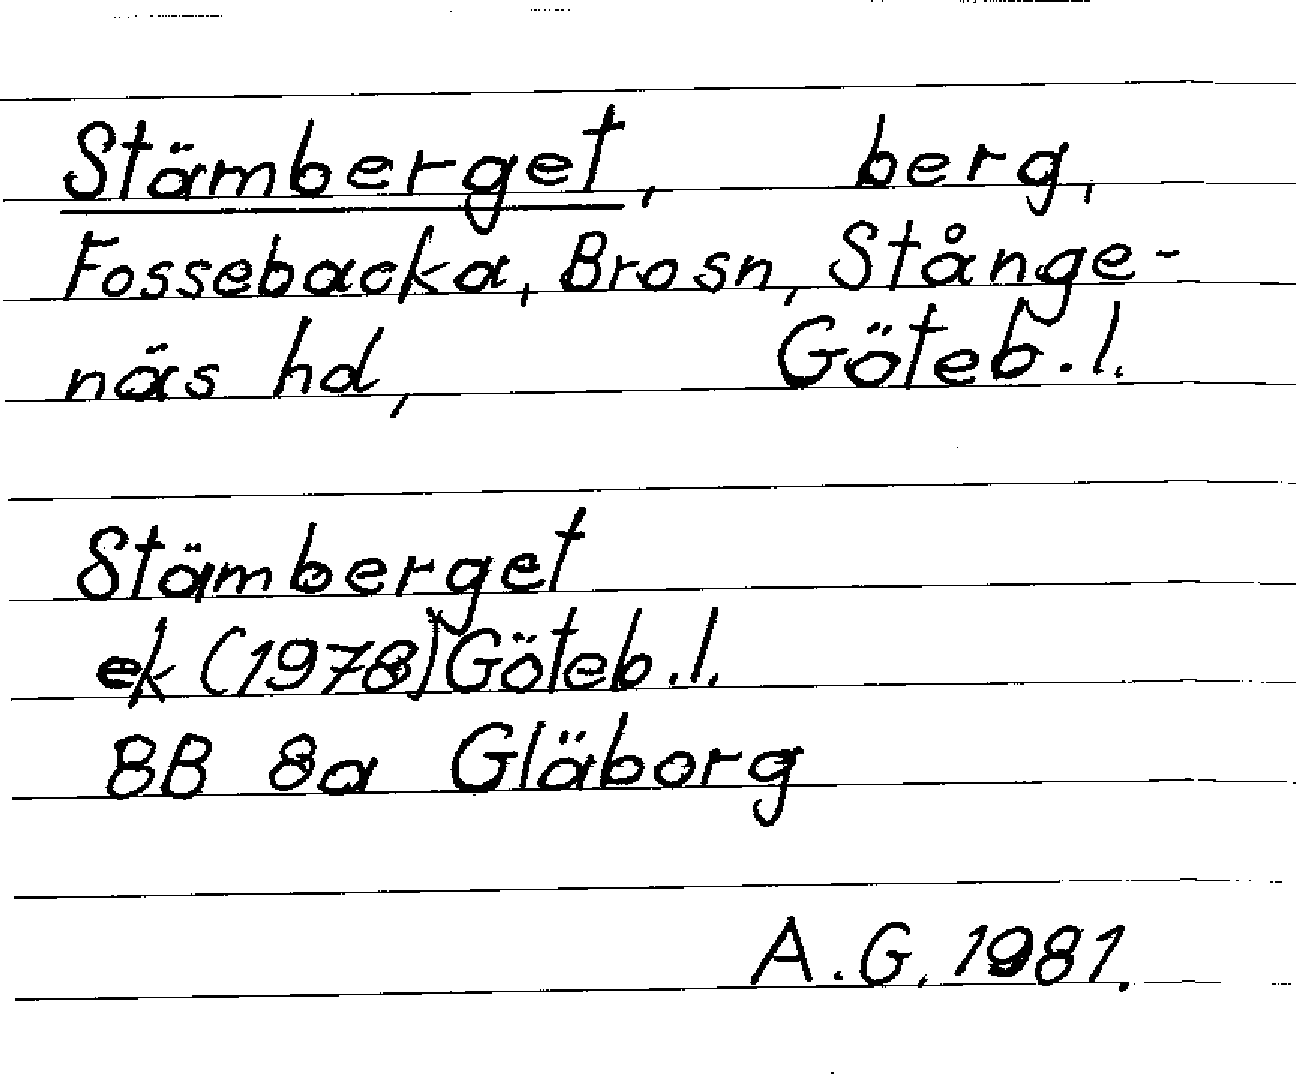 Stämberget, berg,
Fossebacka, Brosn, Stånge-
näs hd, Göteb.l.
Stämberget
ek (1978) Göteb.l.
8B 8a Gläborg
A.G. 1981.